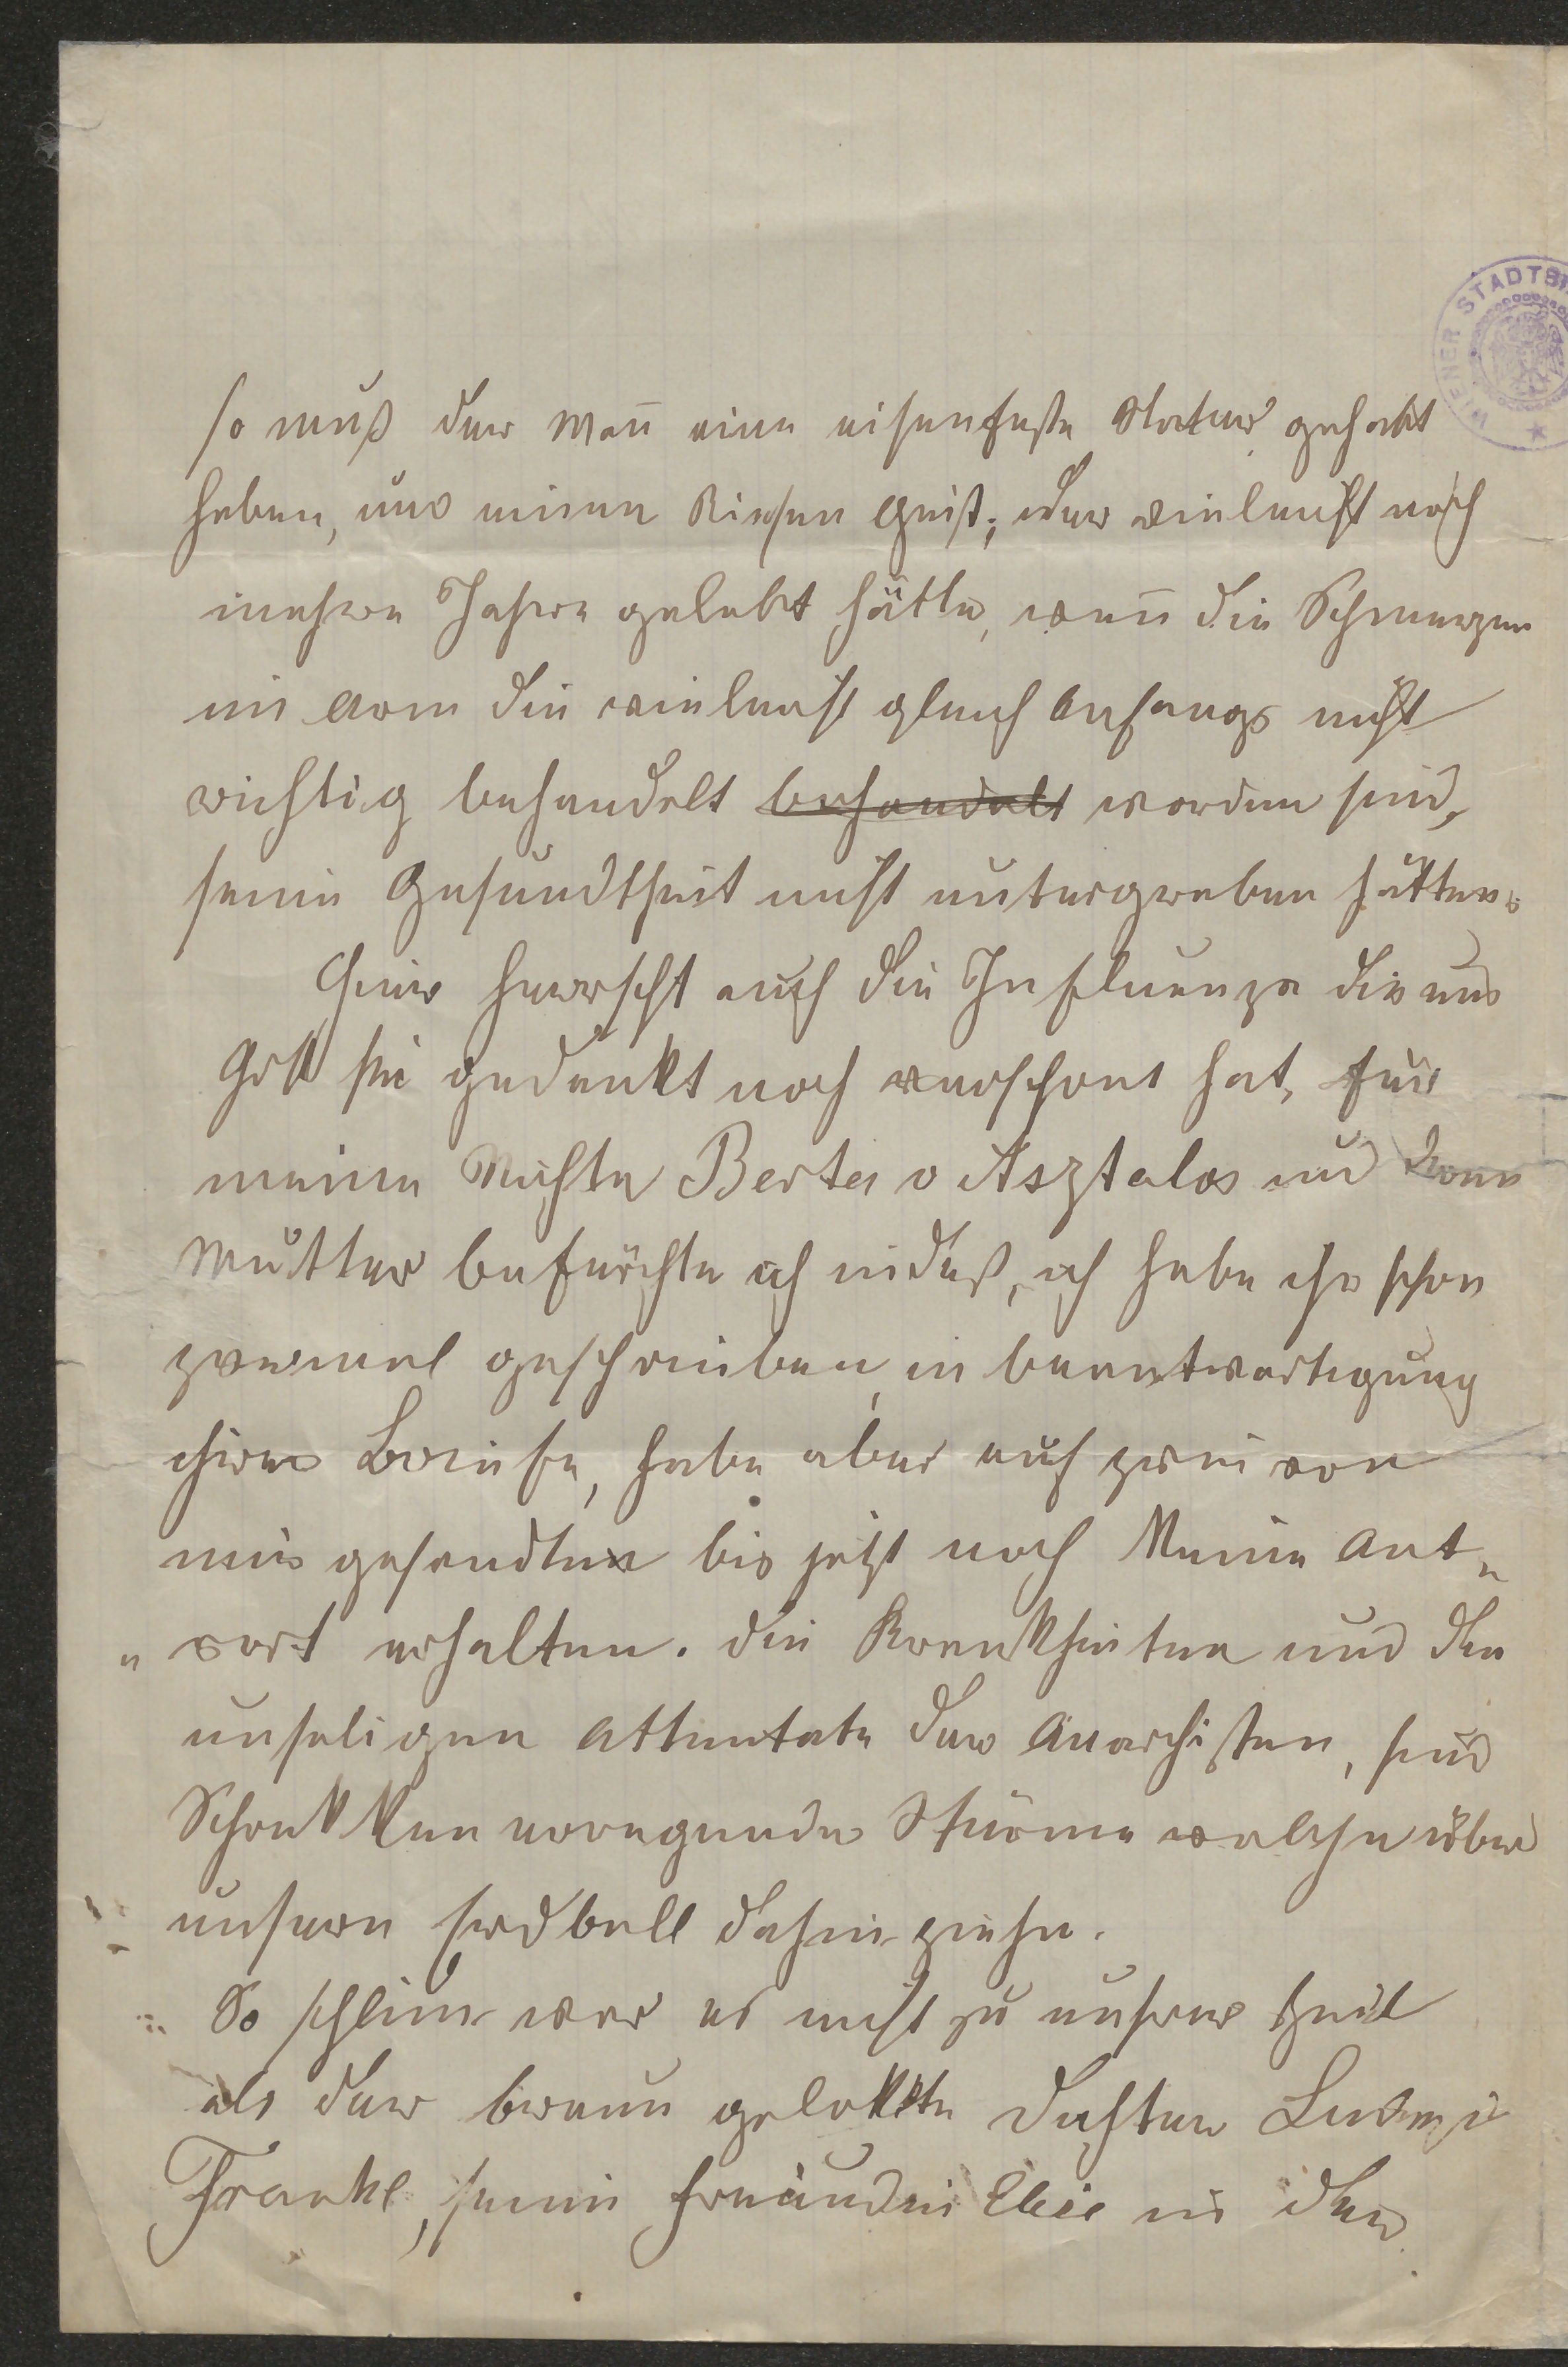 WIENER STADTBI
so muß der Mañ eine eisenfeste Natur gehabt
haben, und einen Riesen Geist; der vieleicht noch
mehre Jahre gelebt hätte, weñ die Schmerzen
im Arm die vieleicht gleich Anfangs nicht
richtig behandelt behandelt worden sind,
seine Gesundtheit nicht untergraben hätten.
Hier herrscht auch die Influenza die uns
Gott sei gedankt noch verschont hat, für
meine Nichte Berta v Asztalos und deren
Mutter befürchte ich indeß, ich habe ihr schon
zweimal geschrieben, in beantwortigung
ihrer Briefe, habe aber auf zwei von
mir gesendten bis jetzt noch Keine Ant„
„wort erhalten. Die Krankheiten und die
unseligen Attentate der Anarchisten, sind
Schrekken erregende Stürme welche über
unsern Erdball dahin ziehn.
So schlim war es nicht zu unserer Zeit
als der braun gelokkte Dichter Ludwig
Frankl, seine Freundin Elise in der